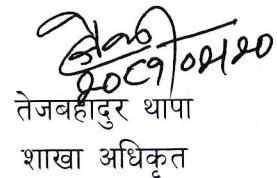 २०८१/०२/२०
तेजबहादुर थापा
शाखा अधिकृत